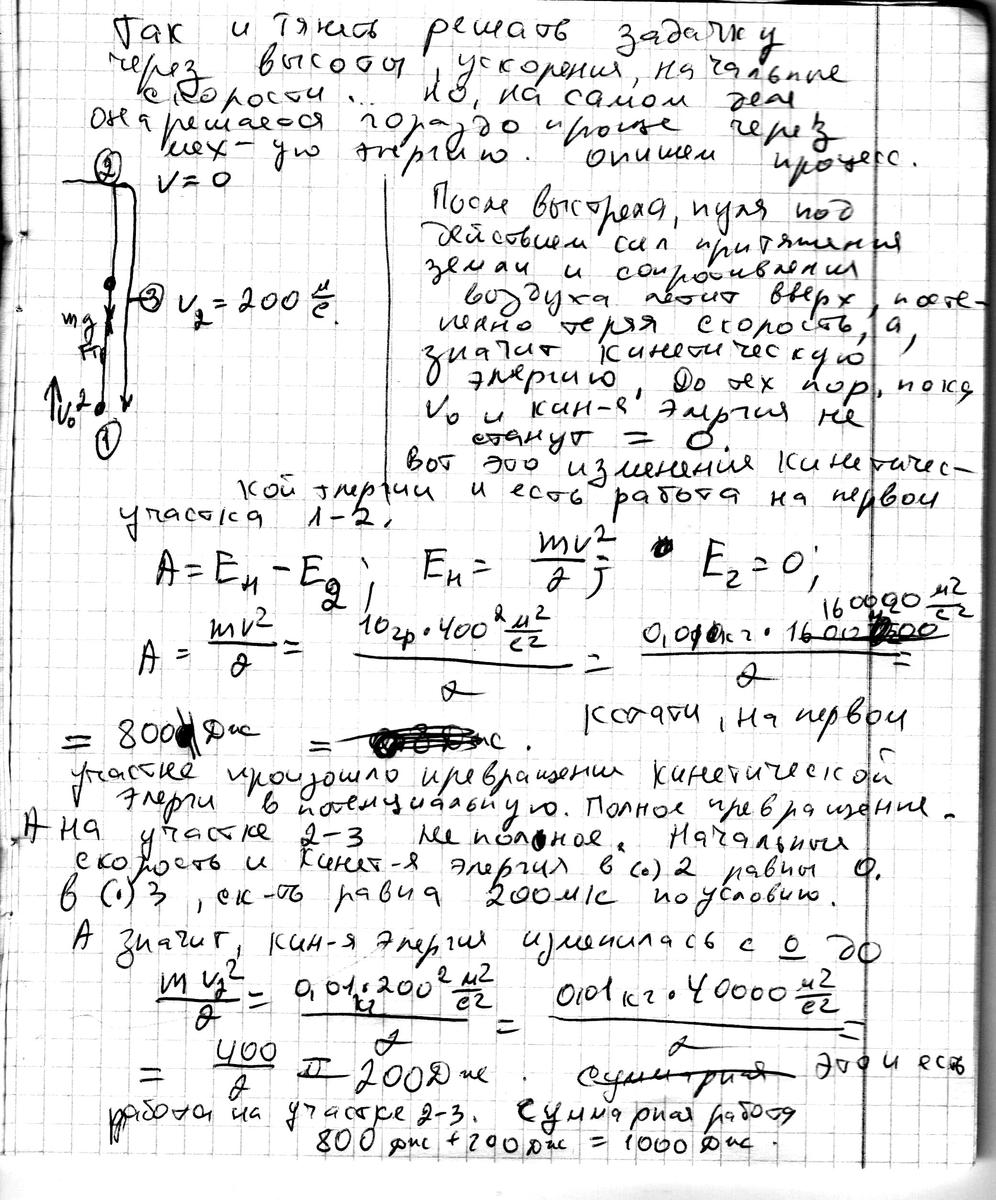 Так и тянет решать задачку
через высоты, ускорения, начальные
скорости... но, на самом деле
она решается гораздо проще через
мех-ую энергию. Опишем процесс.
② V = 0
После выстрела, пуля под
действием сил притяжения
земли и сопротивления
воздуха летит вверх, посте-
пенно теряя скорость, а,
значит кинетическую
энергию, До тех пор, пока
V₀ и кин-я энергия не
станут = 0.
③ V₂ = 200 м/с.
mg
V₀
①
Вот это изменения кинетичес-
кой энергии и есть работа на первом
участка 1-2.
A = Eн - E2; Eн = mv²/2; E₂ = 0;
A = mv²/2 = 10гр · 400² м²/с² / 2 = 0,01кг · 160000 м²/с² / 2 =
= 800 Дж = . Кстати, на первом
участке произошло превращении кинетической
энерги в потенциальную. Полное превращение.
А на участке 2-3 не полное. Начальныя
скорость и кинет-я энергия в (.) 2 равны 0.
в (.) 3, ск-ть равна 200м/с по условию.
А значит, кин-я энергия изменилась с 0 до
mv₂²/2 = 0,01кг · 200² м²/с² / 2 = 0,01кг · 40000 м²/с² / 2 =
= 400/2 = 200Дж. Суммарная это и есть
работа на участке 2-3. Суммарная работа
800 Дж + 200 Дж = 1000 Дж.